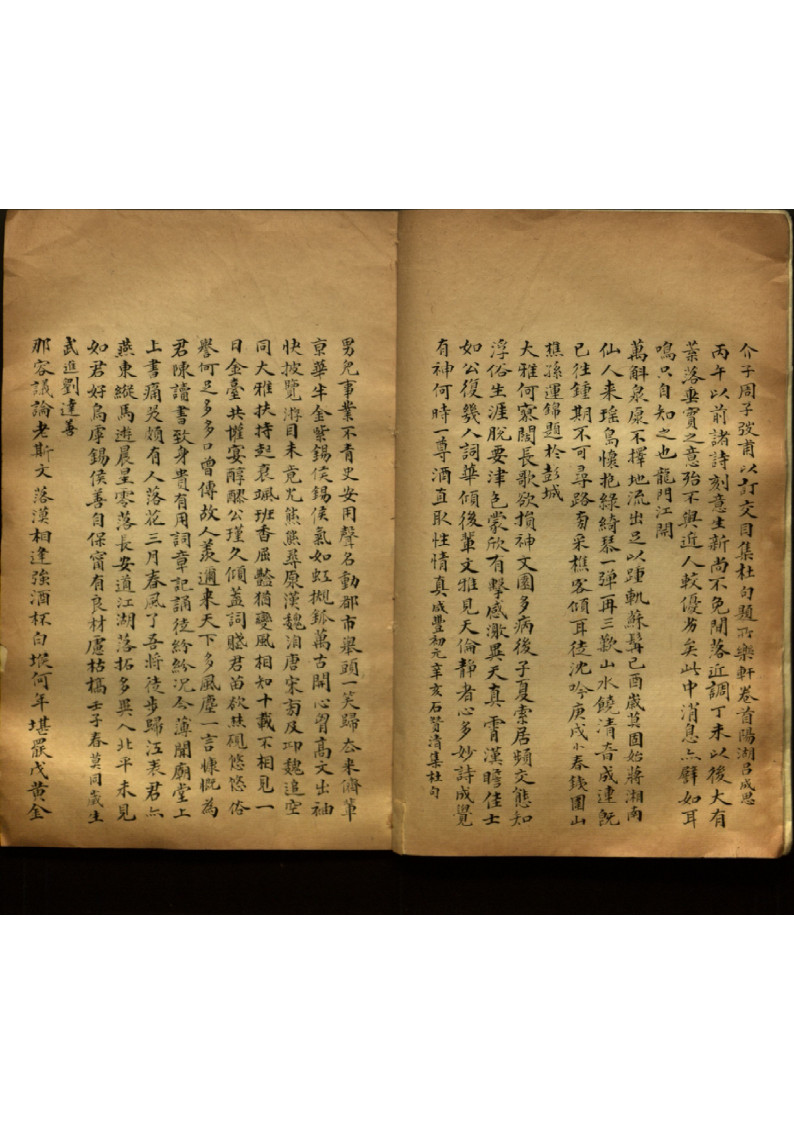 介子周子弢甫以訂交因集杜句題所樂軒卷首陽湖呂成思
丙午以前諸詩刻意生新尚不免閒落近調丁未以後大有
葉落垂實之意殆不與近人較優劣矣此中消息亦譬如耳
鳴只自知之也龍門江開
萬斛泉原不擇地流出足以踵軌蘇髯己酉歲莫固始蔣湘南
仙人来瑤島懷抱綠綺琴一彈再三歎山水饒清音成連既
已往鍾期不可尋路旁采樵客傾耳徒沈吟庚戌小春錢圍山
樵孫運錦題於彭城
大雅何寥闊長歌欲損神文園多病後子夏索居頻交態知
浮俗生涯脫要津色蒙欣有擊感激異天真霄漢瞻佳士
如公復幾人詞華傾後輩文雅見天倫靜者心多妙詩成覺
有神何時一尊酒直取性情真咸豐初元辛亥石贊清集杜句
男兒事業不青史安用聲名動都市舉頭一笑歸去来儕輩
京華半金紫錫侯錫侯氣如虹撇瓠萬古開心胷高文出袖
快披覽游目未竟光熊熊葬原漢魏洎唐宋菊及邛魏追空
同大雅扶持起衰颯班香屈豔猶變風相知十載不相見一
日金臺共攉宴醇醪公瑾久傾蓋詞賤君苗欲焚硯悠悠俗
譽何足多多口曾傳故人羨邇来天下多風塵一言慷慨為
君陳讀書致身貴有用詞章記誦徒紛紛况今薄閫廟堂上
上書痛哭頗有人落花三月春風了吾將徒步歸江表君亦
燕東縱馬遊晨星零落長安道江湖落拓多異人北平未見
如君好烏虖錫侯善自保甯有良材慮枯槁壬子春莫同歲生
武進劉達善
那容議論老斯文落漠相逢強酒杯白堠何年堪罷戍黄金